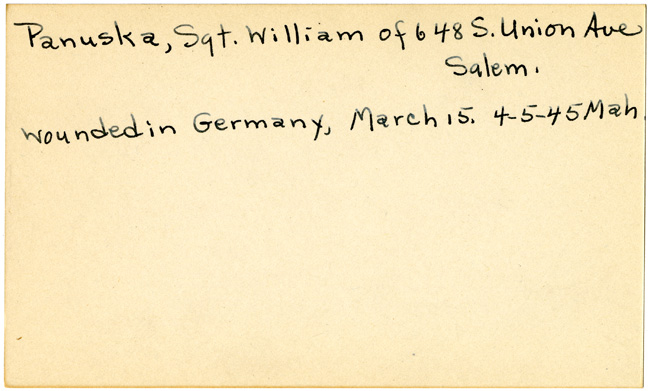 Panuska, Sgt. William of 648 S. Union Ave
Salem.
wounded in Germany, March 15. 4-5-45 Mah.